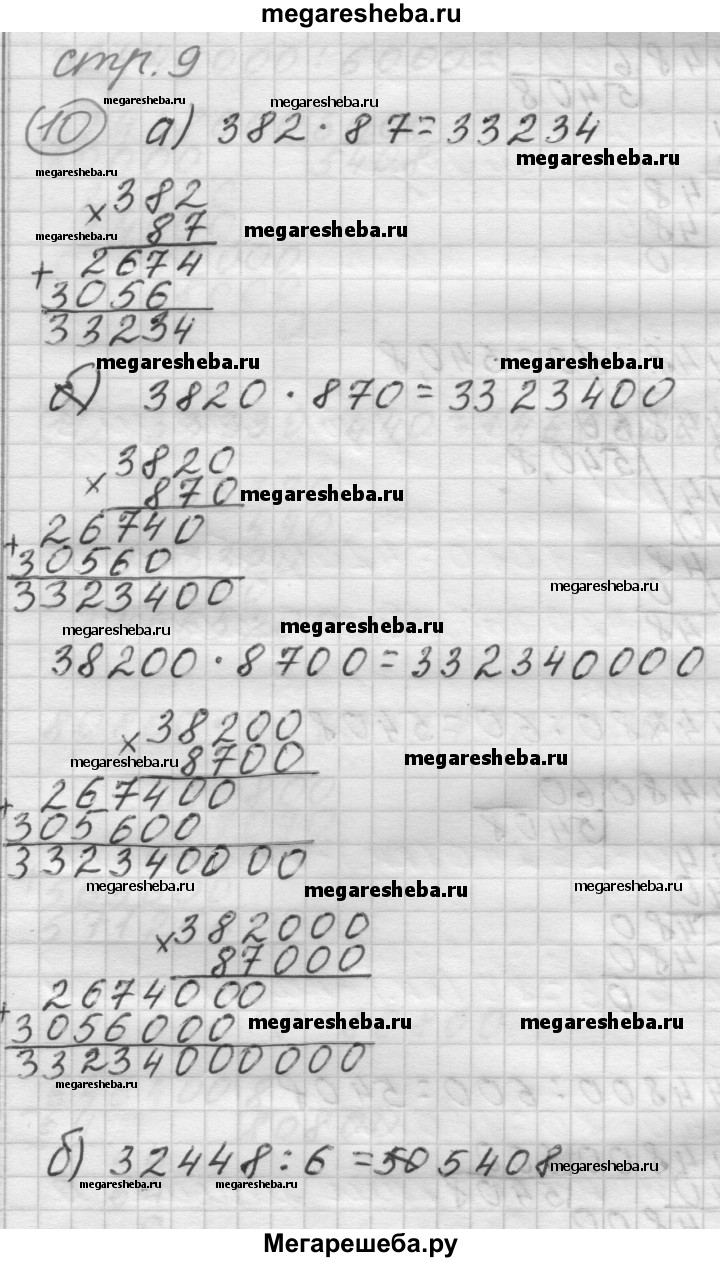 megaresheba.ru
стр. 9
megaresheba.ru megaresheba.ru
10 а) 382 · 87 = 33234
megaresheba.ru
megaresheba.ru
× 382
megaresheba.ru 87 megaresheba.ru
+ 2674
3056
33234
megaresheba.ru megaresheba.ru
б) 3820 · 870 = 3323400
× 3820
870 megaresheba.ru
+ 26740
30560
3323400
megaresheba.ru
megaresheba.ru megaresheba.ru
38200 · 8700 = 332340000
× 38200
megaresheba.ru 8700 megaresheba.ru
+ 267400
305600
332340000
megaresheba.ru megaresheba.ru megaresheba.ru
× 382000
87000
+ 2674000
3056000 megaresheba.ru megaresheba.ru
33234000000
megaresheba.ru
б) 32448 : 6 = 5408 megaresheba.ru
megaresheba.ru megaresheba.ru
Мегарешеба.ру